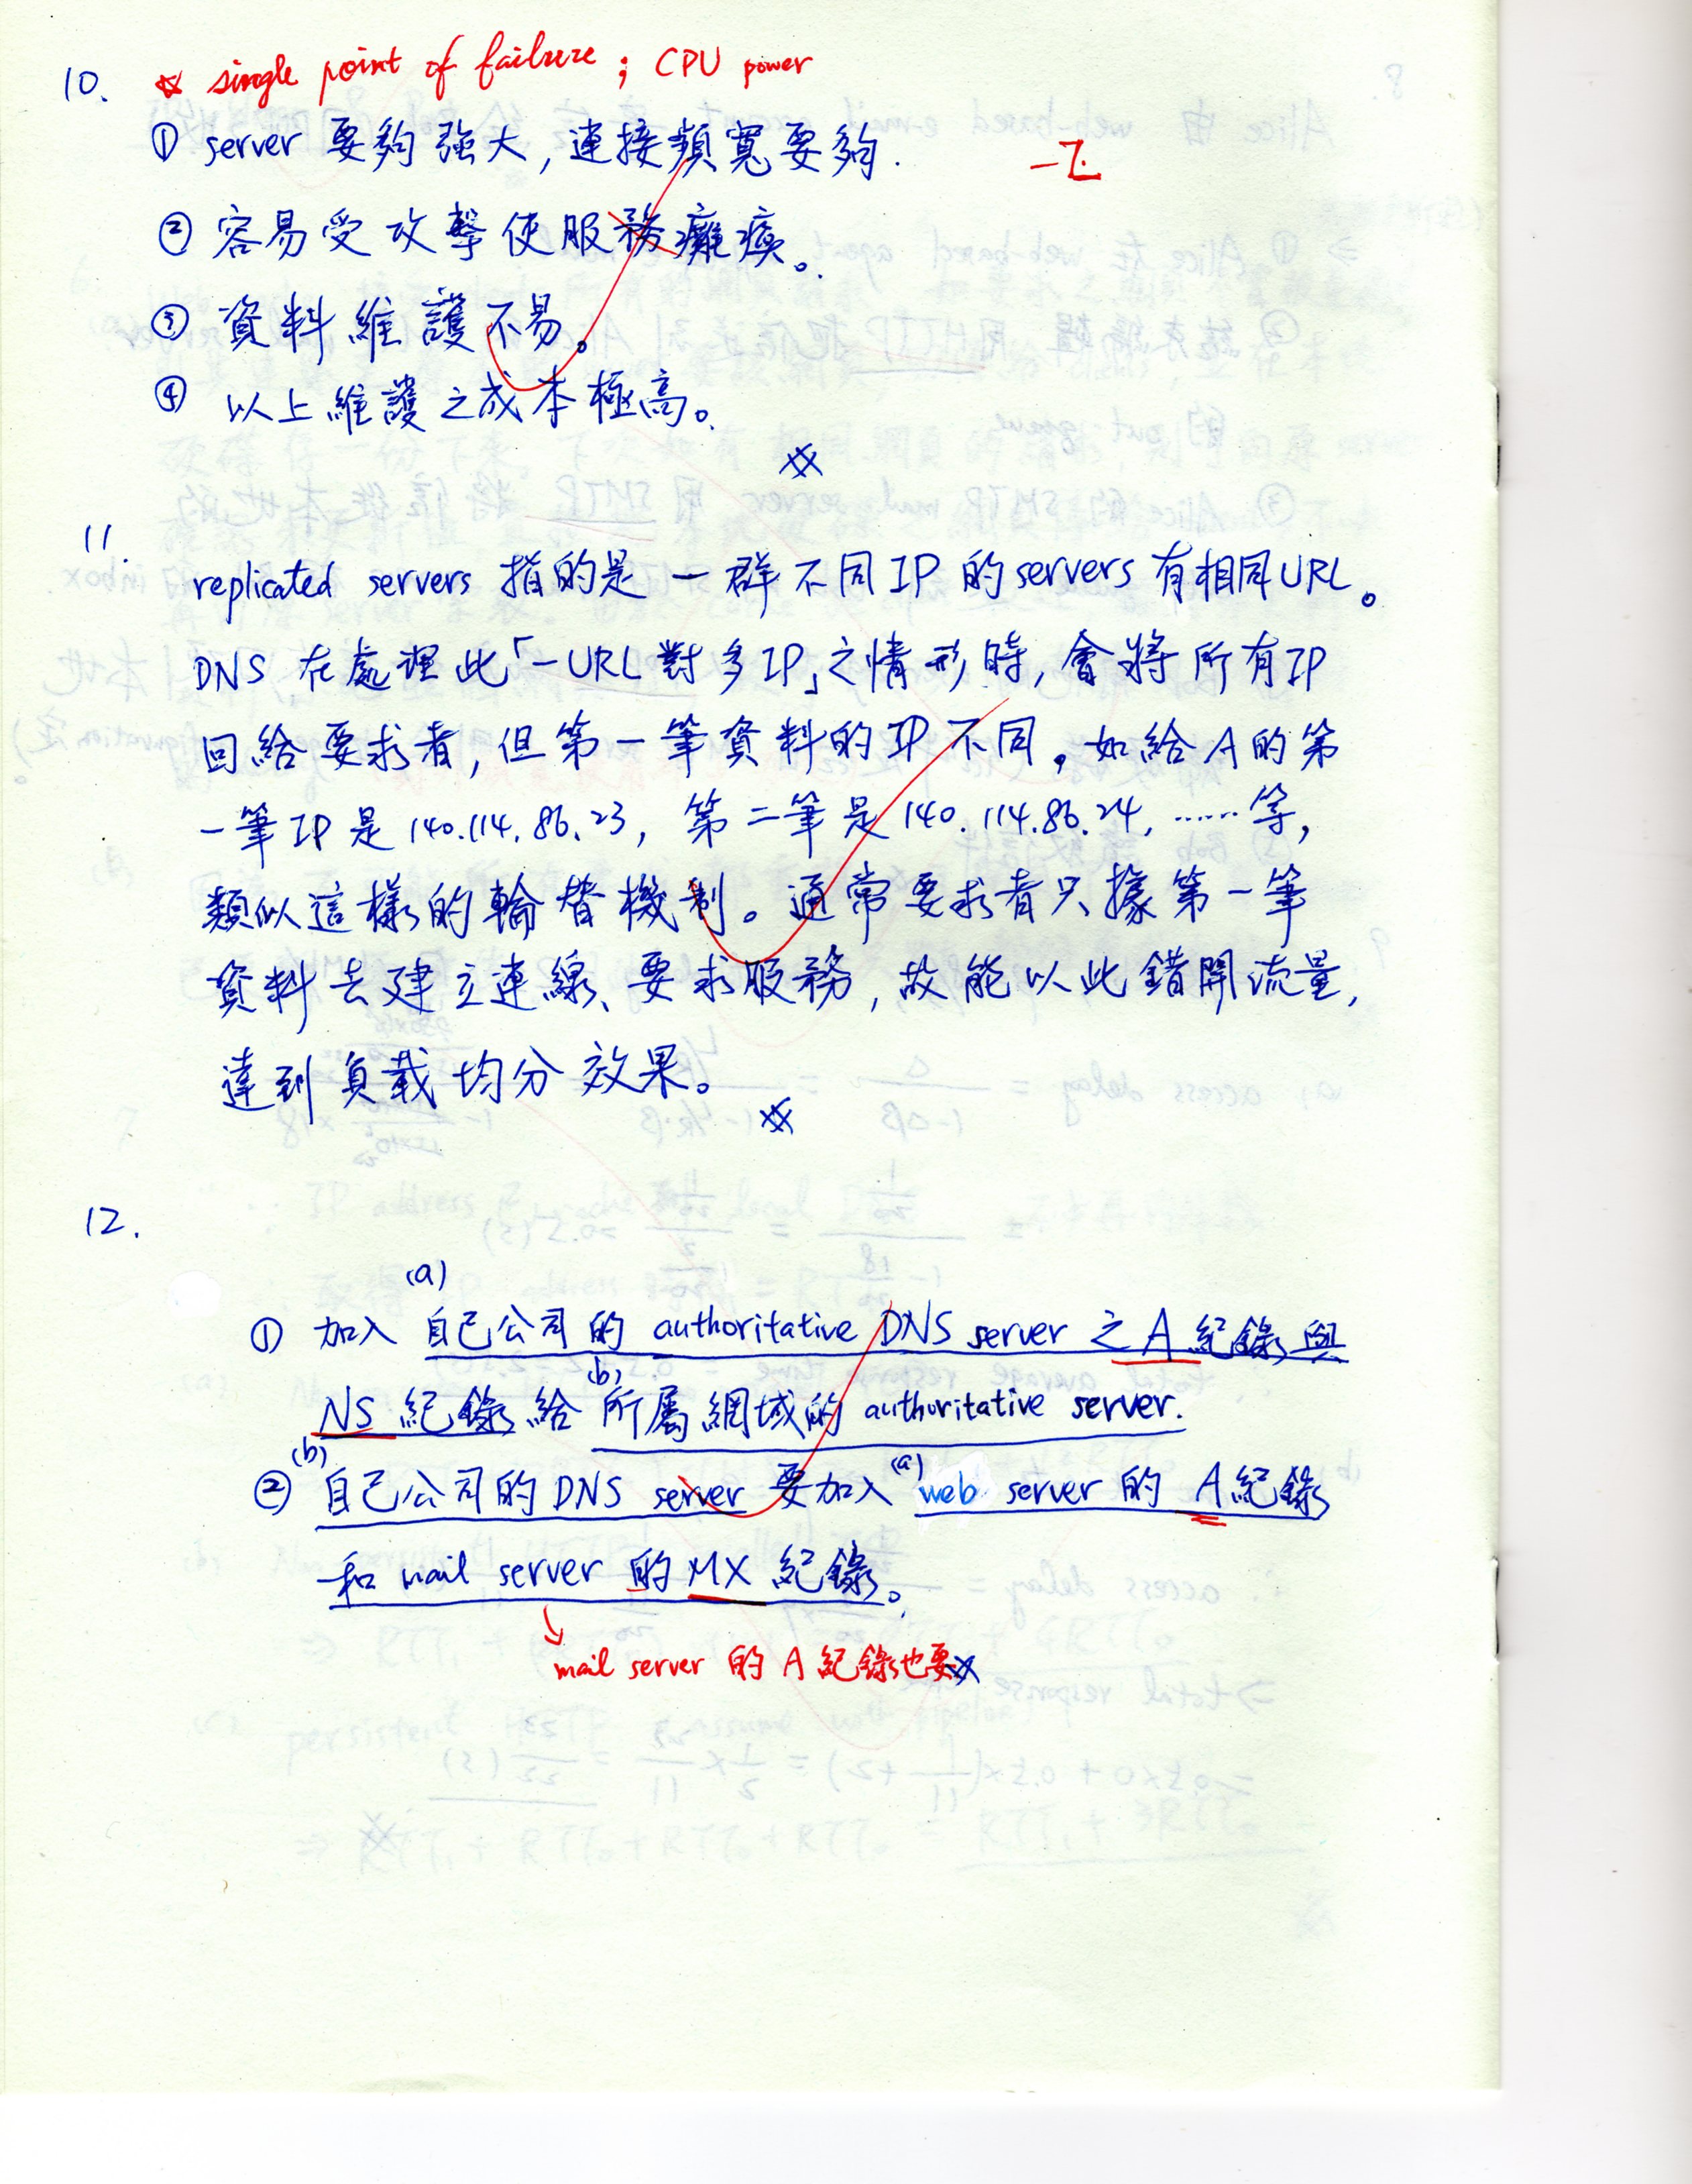 10. single point of failure ; CPU power
① server 要夠強大, 連接頻寬要夠.
② 容易受攻擊使服務癱瘓。
③ 資料維護不易。
④ 以上維護之成本極高。
11.
replicated servers 指的是一群不同IP的servers有相同URL。
DNS 在處理此「一URL對多IP」之情形時, 會將所有IP
回給要求者, 但第一筆資料的IP不同。如給A的第
一筆IP是140.114.86.23, 第二筆是140.114.86.24, ……等,
類似這樣的輪替機制。通常要求者只據第一筆
資料去建立連線、要求服務, 故能以此錯開流量,
達到負載均分效果。
12.
(a)
① 加入自己公司的 authoritative DNS server 之A紀錄與
(b)
NS 紀錄給所屬網域的 authoritative server.
(b) (a)
② 自己公司的DNS server 要加入 web server 的 A紀錄
和 mail server 的 MX 紀錄。
mail server 的 A 紀錄也要